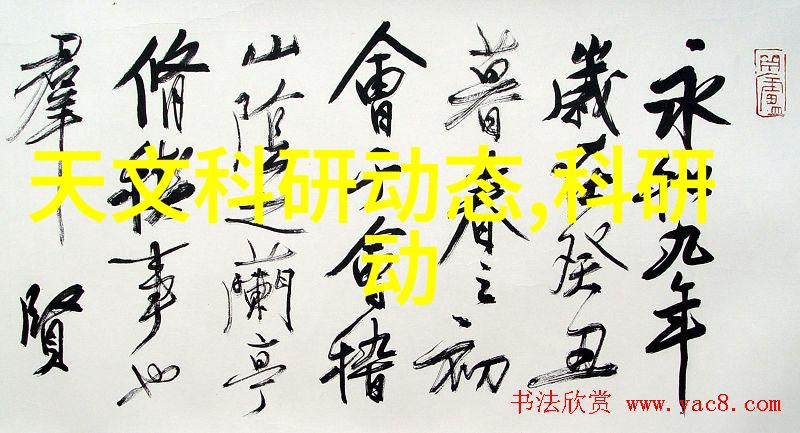 天文科研动态,科研
动
永和九年
歲在癸丑
暮春之初
會于會稽
山陰之蘭亭
脩稧事也
羣賢
书法欣赏 www.yac8.com